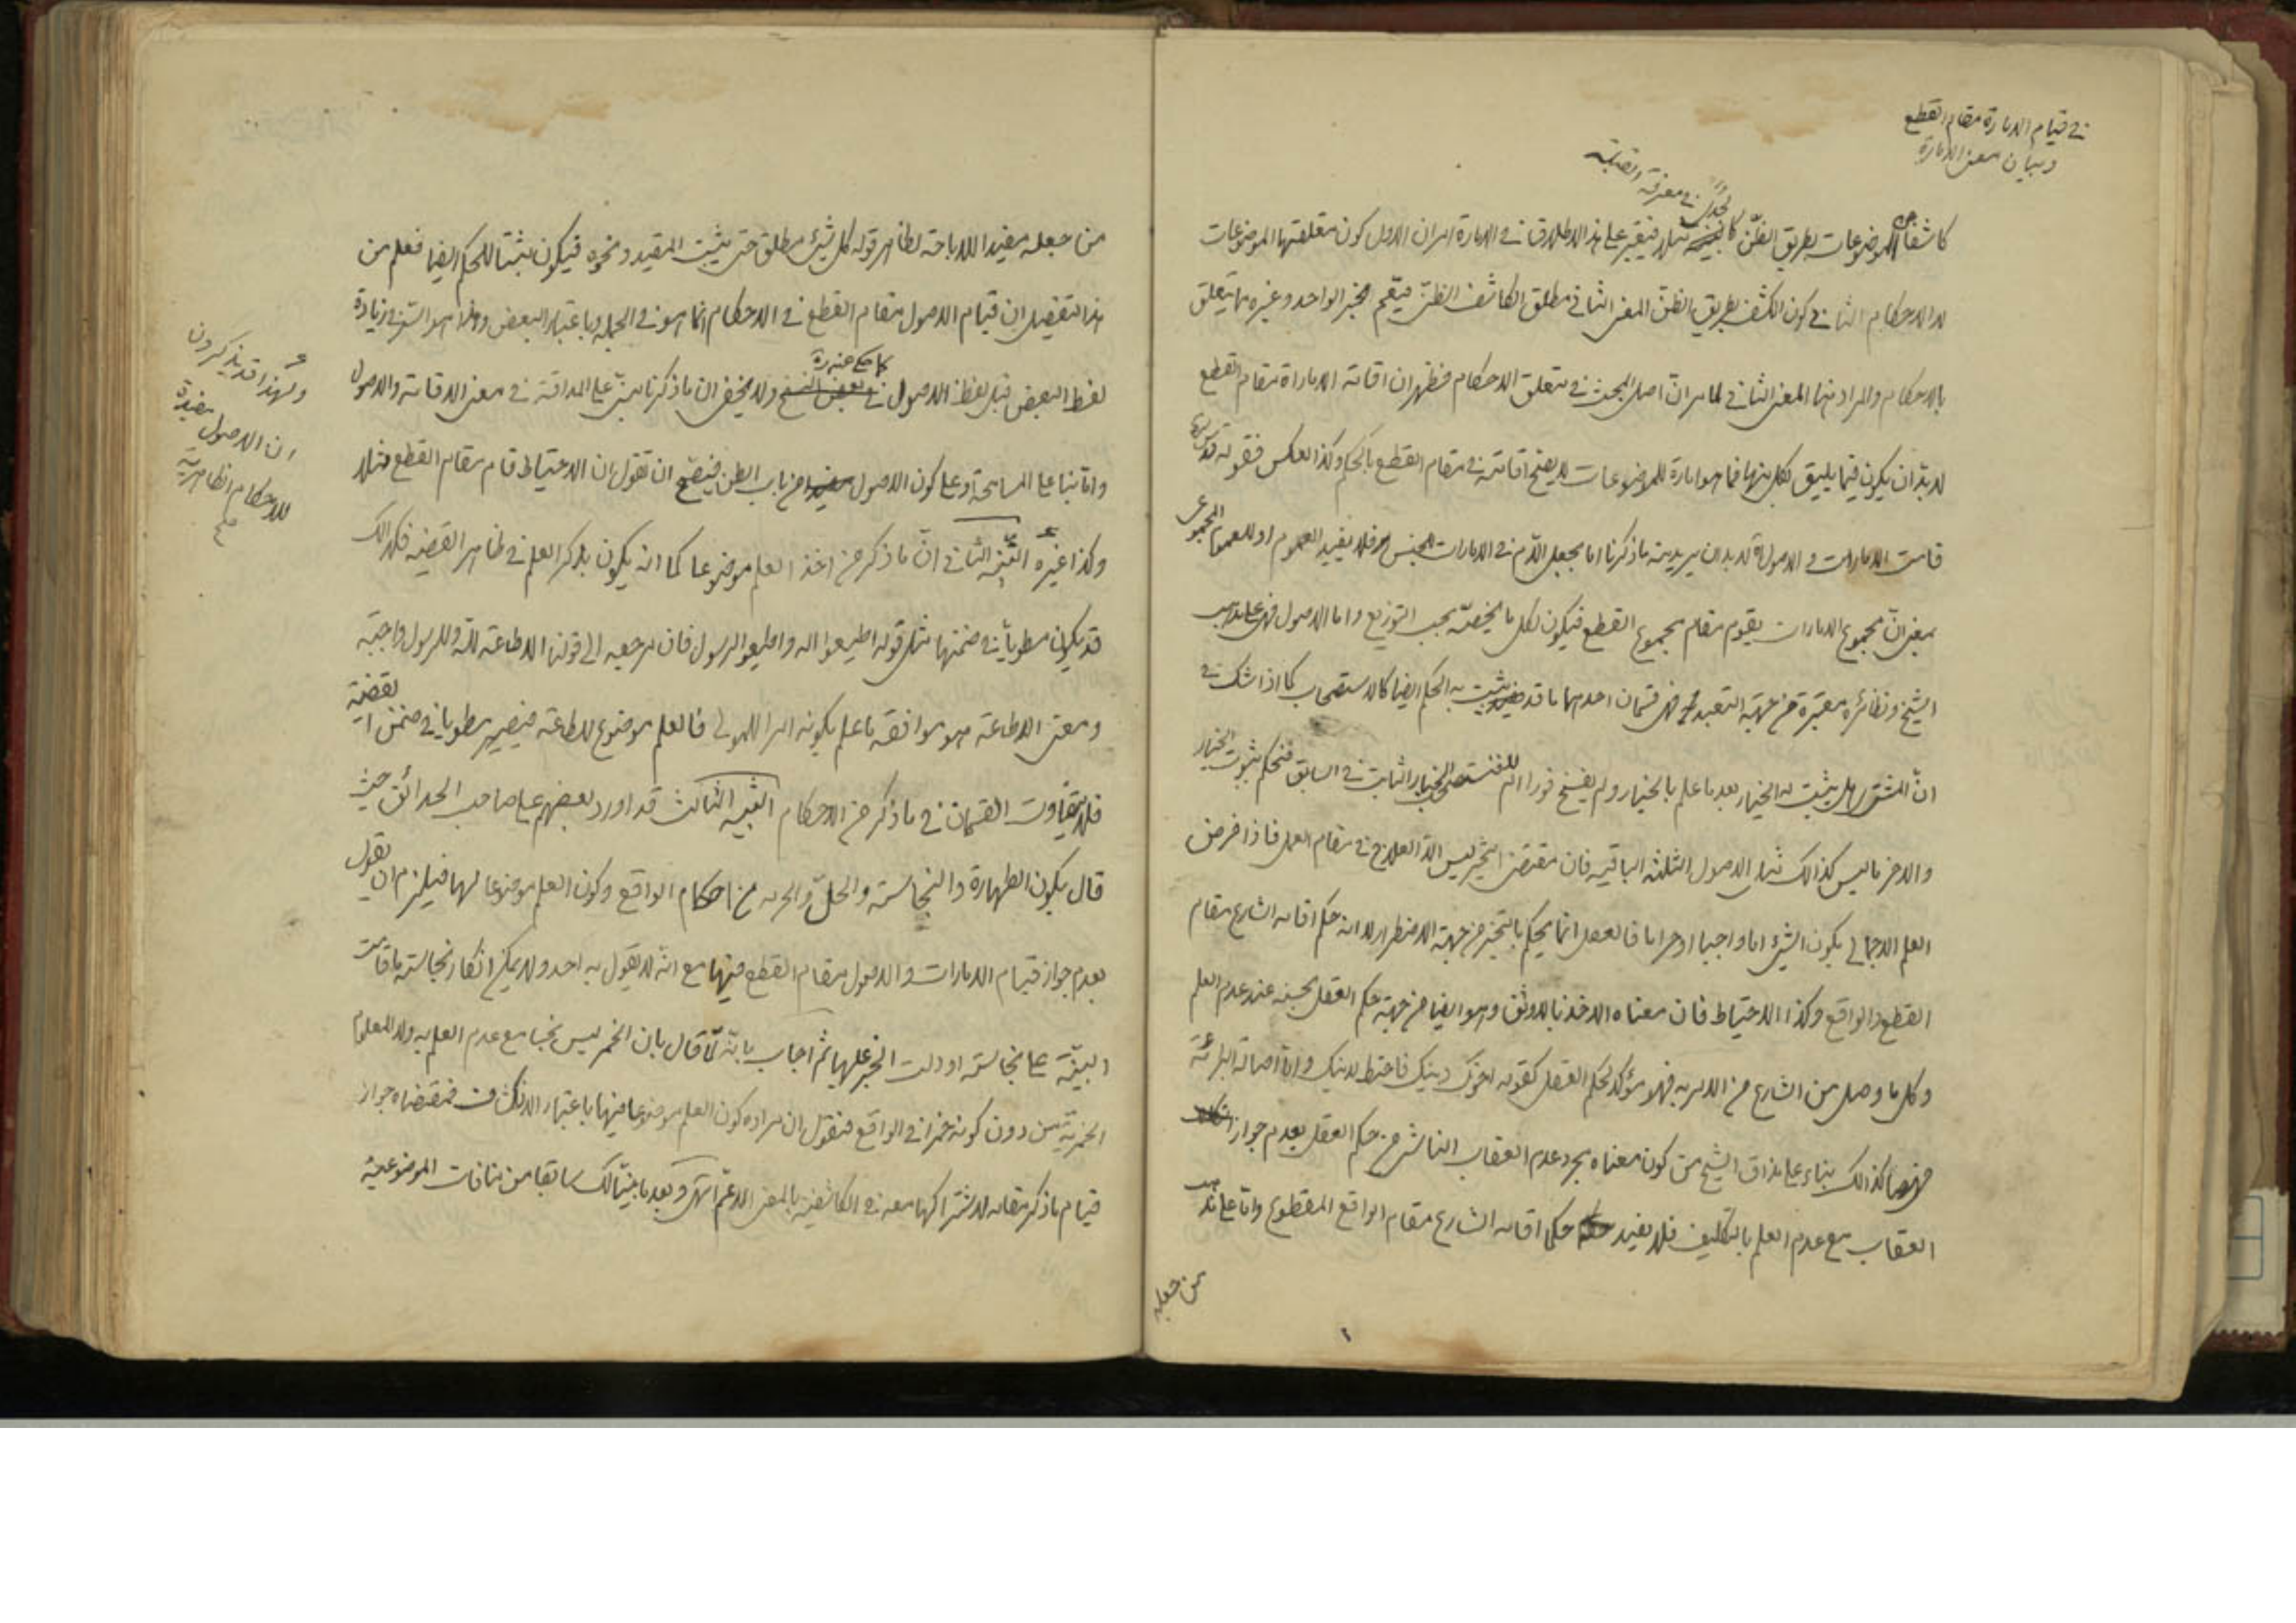 في قيام الامارة مقام القطع
وبيان معنى الامارة
في معرفة القبلة
كاشفا عن الموضوعات بطريق الظن مثلا فيعتبر على هذا الاطلاق في الامارة امران الاول كون متعلقها الموضوعات
لا الاحكام الثاني كون الكشف بطريق الظن المعنى الثاني مطلق الكاشف الظني فيعم الخبر الواحد وغيره مما يتعلق
بالاحكام والمراد منها المعنى الثاني لما مر ان اصل البحث في متعلق الاحكام فظهر ان اقامة الامارة مقام القطع
لا بد ان يكون فيما يليق لكل منها فما هو امارة للموضوعات لا يصح اقامته في مقام القطع بالحكم وكذا العكس فقوله قدس سره
قامت الامارات والاصول لا بد ان يريد منه ما ذكرنا اما بجعل اللام في الامارات للجنس فلا يفيد العموم او للعموم المجموعي
بمعنى ان مجموع الامارات يقوم مقام مجموع القطع فيكون لكل ما يخصه بحسب التوزيع واما الاصول فهي على مذهب
الشيخ ونظائره معتبرة من جهة التعبد فهي قسمان احدهما ما قد يثبت به الحكم ايضا كالاستصحاب كما اذا شك في
ان المشتري هل يثبت له الخيار بعد ما علم بالخيار ولم يفسخ فورا ام لا فنستصحب الخيار الثابت في السابق فنحكم بثبوت الخيار
والاخر ما ليس كذالك مثل الاصول الثلثة الباقية فان مقتضى التخيير ليس الا العلاج في مقام العمل فاذا فرض
العلم الاجمالي بكون الشيء اما واجبا او حراما فالعقل انما يحكم بالتخيير من جهة الاضطرار لا انه حكم اقامه الشارع مقام
القطع والواقع وكذا الاحتياط فان معناه الاخذ بالاوثق وهو ايضا من جهة حكم العقل بحسنه عند عدم العلم
وكل ما وصل من الشارع من الامر به فهو مؤكد لحكم العقل كقوله اخوك دينك فاحتط لدينك واما اصالة البرائة
فهي كذالك بناء على مذاق الشيخ من كون معناه مجرد عدم العقاب الناشي من حكم العقل بعدم جواز
العقاب مع عدم العلم بالتكليف فلا يفيد حكما اقامه الشارع مقام الواقع المقطوع واما على مذهب
من جعله
من جعله مفيدا للاباحة لظاهر قوله كل شيء مطلق حتى يثبت المقيد ونحوه فيكون مثبتا للحكم ايضا فعلم من
هذا التفصيل ان قيام الاصول مقام القطع في الاحكام انما هو في الجملة وباعتبار البعض وهذا هو السر في زيادة
لفظ البعض قبل لفظ الاصول في بعض النسخ ولا يخفى ان ما ذكرنا مبني على المداقة في معنى الاقامة والاصول
واما بناء على المسامحة وعلى كون الاصول من باب الظن فيصح ان تقول ان الاحتياط قام مقام القطع مثلا
وكذا غيره التنبيه الثاني ان ما ذكر من اخذ العلم موضوعا كما انه يكون بذكر العلم في ظاهر القضية فكذالك
قد يكون مطويا في ضمنها مثل قوله اطيعوا الله واطيعوا الرسول فان مرجعه الى قولنا الاطاعة لله وللرسول واجبة
ومعنى الاطاعة هو موافقة ما علم بكونه امرا للمولى فالعلم موضوع للاطاعة فيصير مطويا في ضمن القضية
فلا يتفاوت القسمان في ما ذكر من الاحكام التنبيه الثالث قد اورد بعضهم على صاحب الحدائق حيث
قال بكون الطهارة والنجاسة والحل والحرمة من احكام الواقع وكون العلم موضوعا لها فيلزم ان يقول
بعدم جواز قيام الامارات والاصول مقام القطع فيها مع انه لا يقول به احد ولا يمكن انكار نجاسة ما قامت
البينة على نجاسته او دلت الخبر عليها ثم اجاب بانه لما قال بان الخمر ليس نجسا مع عدم العلم به ولا المعلوم
الخمرية من دون كونه خمرا في الواقع فنقول ان مراده كون العلم موضوعا فيها باعتبار الانكشاف فمقتضاه جواز
قيام ما ذكر مقامه لاشتراكها معه في الكاشفية بالمعنى الاعم انتهى وبعد ما بينا لك سابقا من منافات الموضوعية
ولهذا قد يذكرون
ان الاصول مفيدة
للاحكام الظاهرية